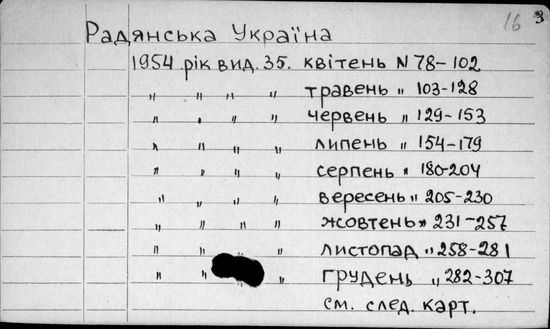 16 3
Радянська Україна
1954 рік вид. 35. квітень N 78-102
„ „ „ „ травень „ 103-128
„ „ „ „ червень „ 129-153
„ „ „ „ липень „ 154-179
„ „ „ „ серпень „ 180-204
„ „ „ „ вересень „ 205-230
„ „ „ „ жовтень „ 231-257
„ „ „ „ листопад „ 258-281
„ „ „ „ грудень „ 282-307
см. след. карт.